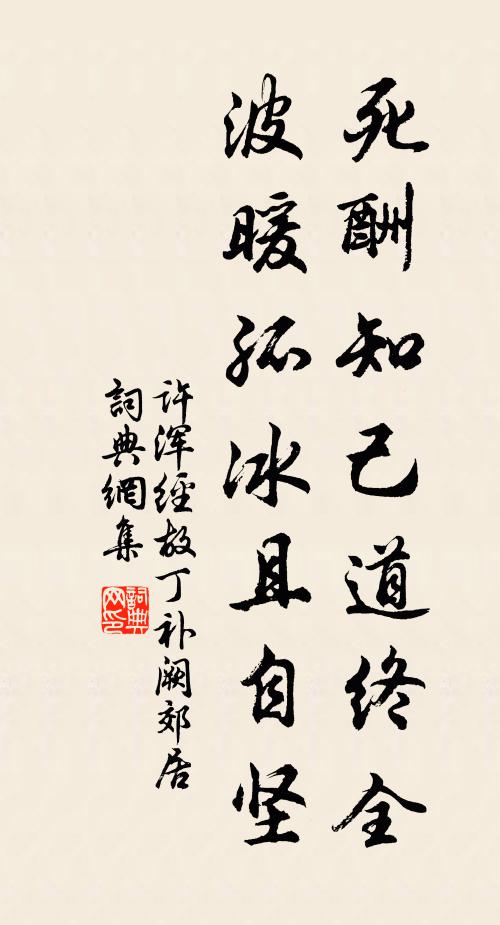 死酬知己道终全
波暖孤冰且自坚
许浑經故丁补阙郊居
詞典網集
詞典网印